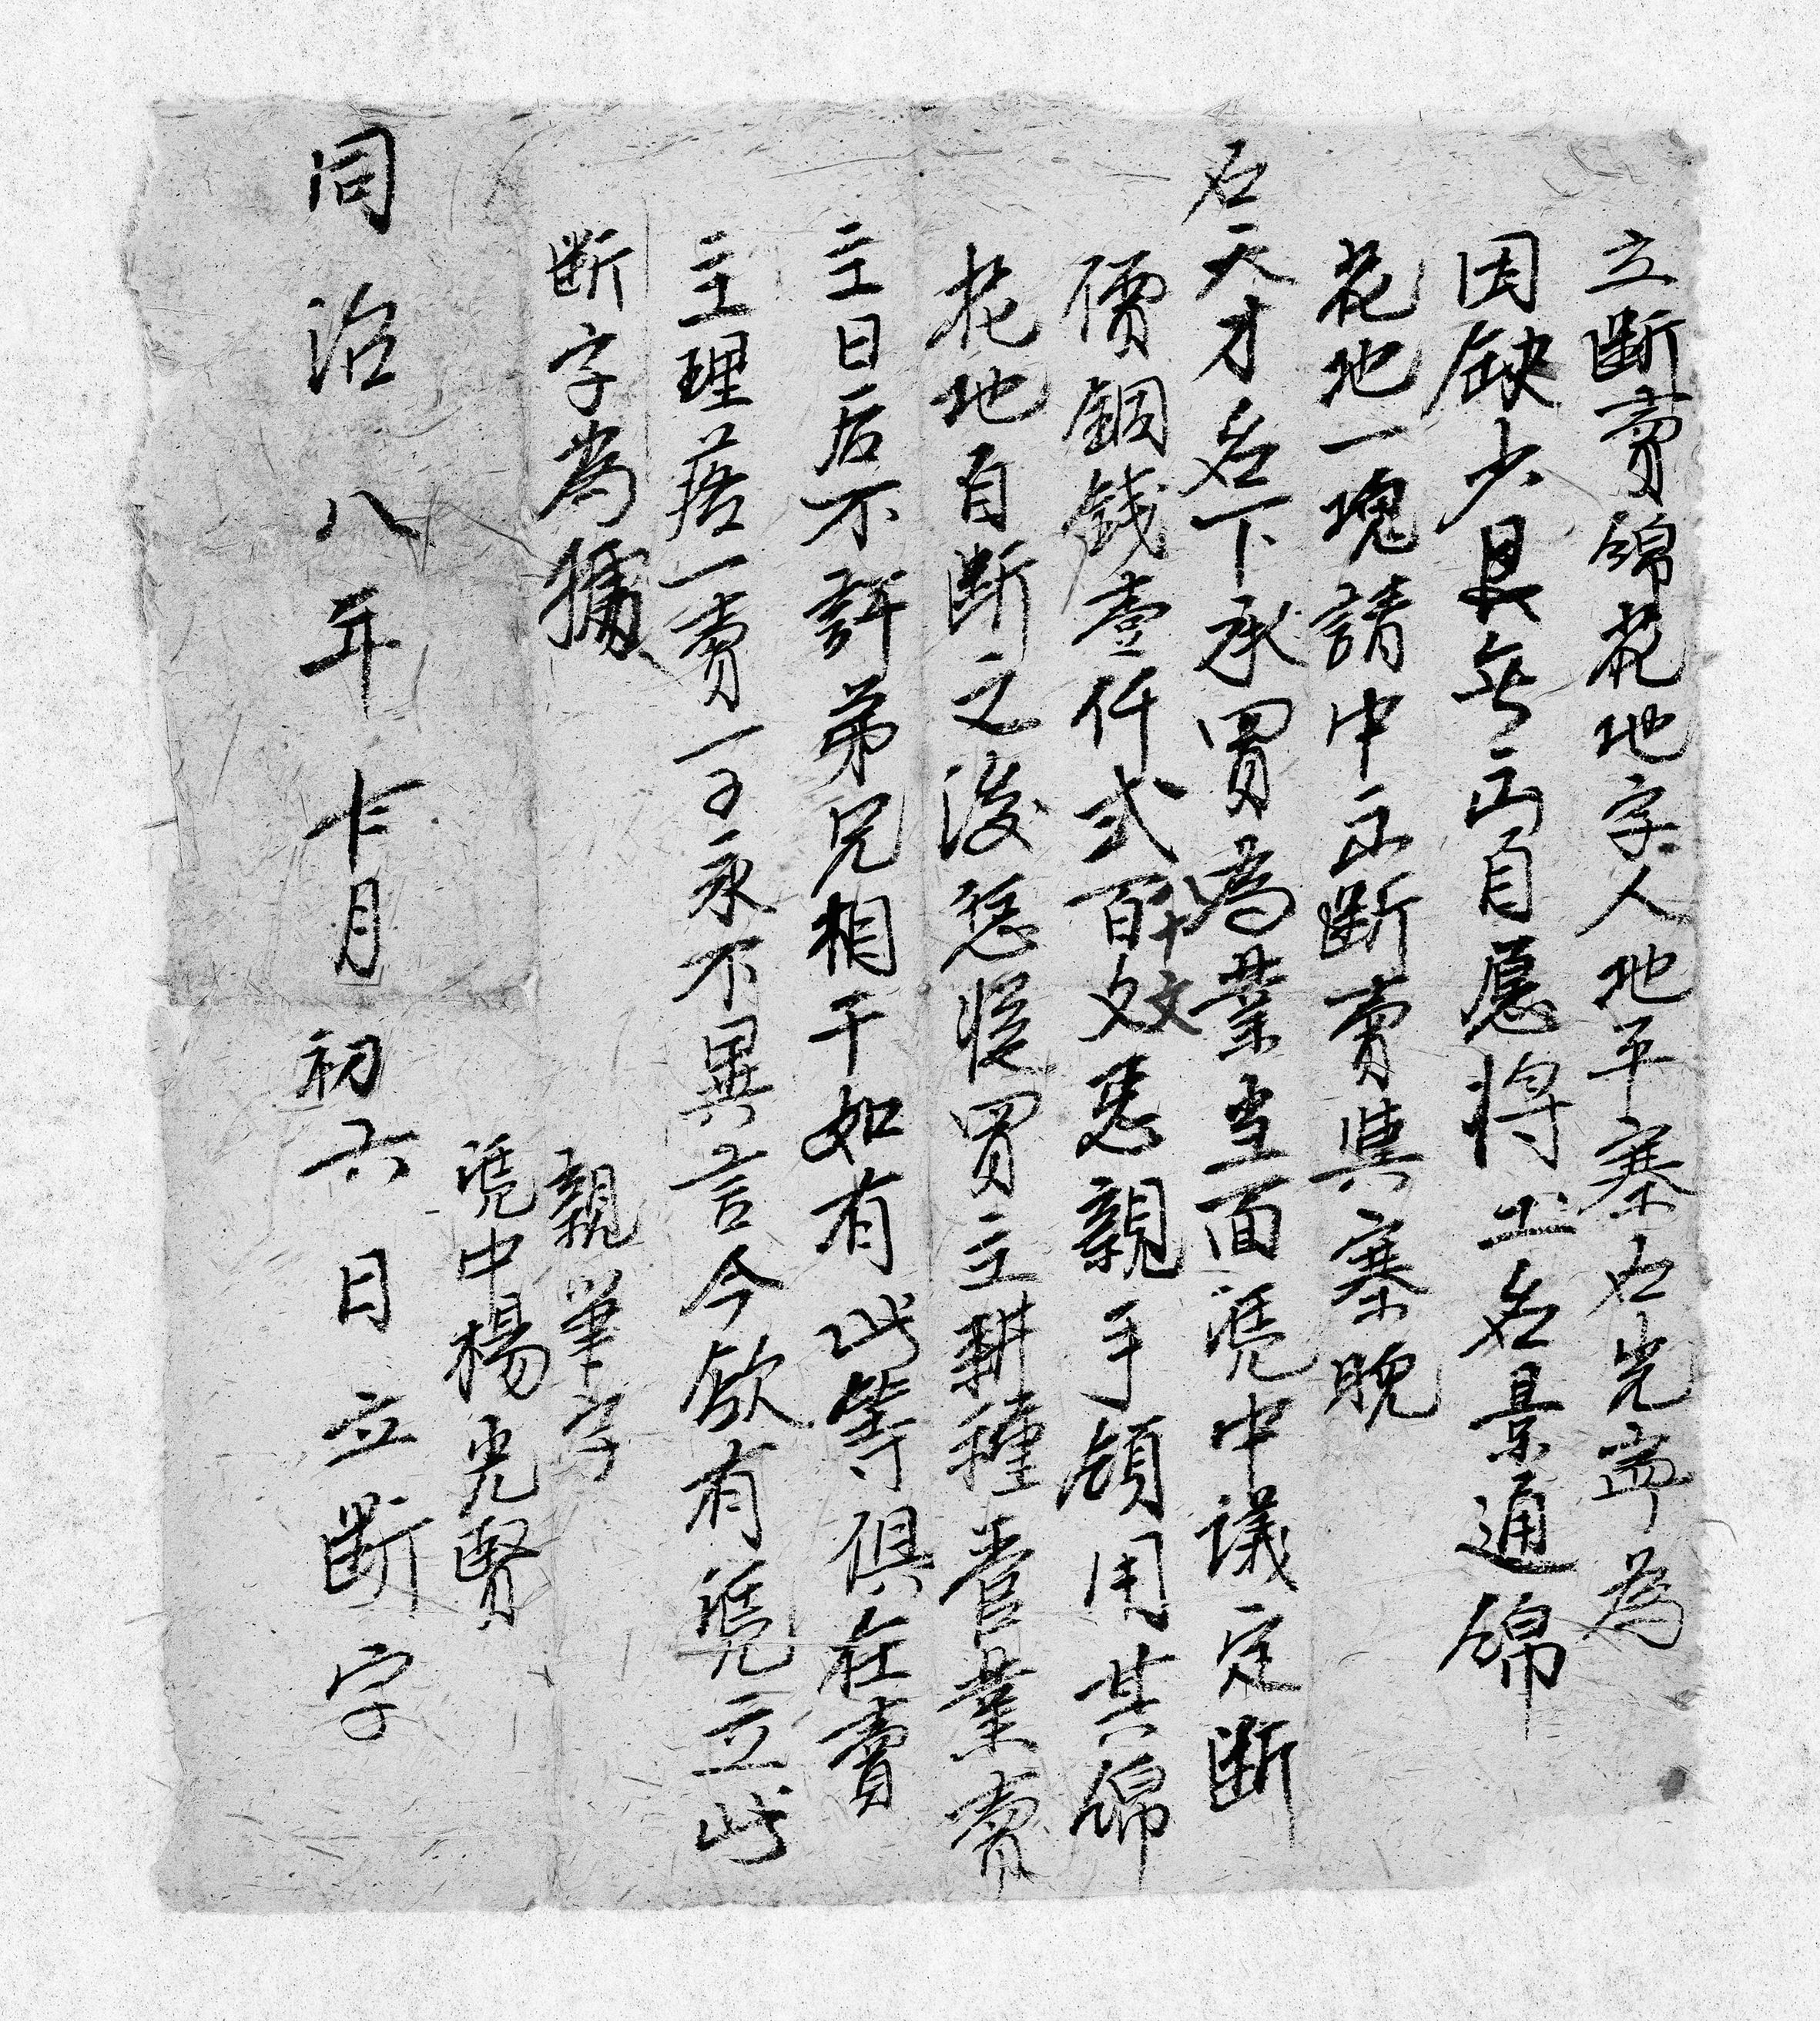 立断賣綿花地字人地平寨石光斈為
因缺少艮無出自愿將土名景通綿
花地一塊請中上断賣與寨晚
石天才名下承買為業当面凭中議定断
價銅錢壹仟弍百十文文悉親手領用其綿
花地自断之後恁從買主耕種管業賣
主日后不許弟兄相干如有此等俱在賣
主理落一賣一了永不異言今欲有凴立此
断字為據
親筆字
凴中楊光賢
同治八年十月初六日立断字